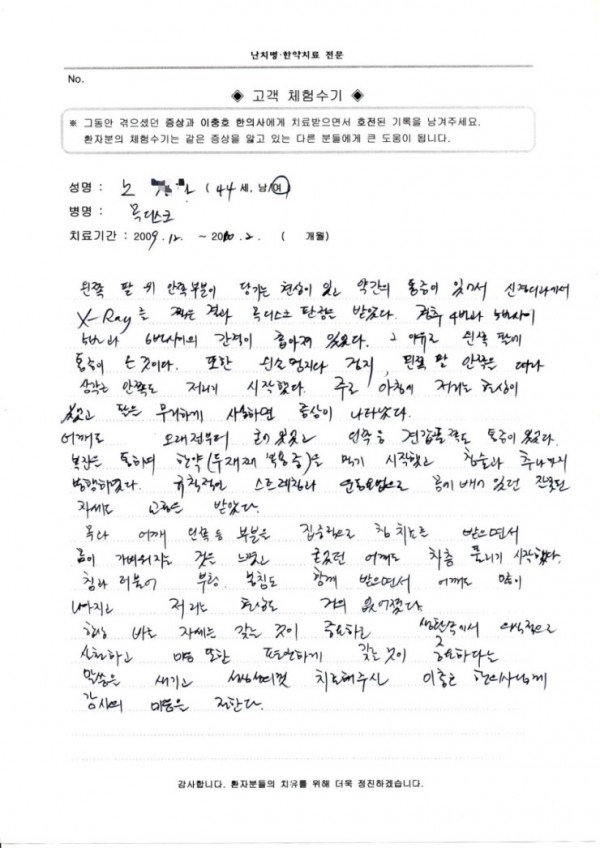 난치병·한약치료 전문
No.
◈ 고객 체험수기 ◈
※ 그동안 겪으셨던 증상과 이충호 한의사에게 치료받으면서 호전된 기록을 남겨주세요.
환자분의 체험수기는 같은 증상을 앓고 있는 다른 분들에게 큰 도움이 됩니다.
성명 : 노 (44세, 남/여)
병명 : 목디스크
치료기간 : 2009.12. ~ 2010.2. ( 개월)
왼쪽 팔 위 안쪽부분이 당기는 현상이 있고 약간의 통증이 있어서
X-Ray를 찍은 결과 목디스크 판정을 받았다. 경추 4번과 5번사이
5번과 6번사이의 간격이 좁아져 있었다. 그 이유로 왼쪽 팔에
통증이 온 것이다. 또한 왼손 엄지와 검지, 왼쪽 팔 안쪽을 따라
안쪽도 저리기 시작했다. 주로 아침에 저리는 현상이
있었고 팔을 무겁게 사용하면 증상이 나타났다.
어깨도 오래전부터 있었고 왼쪽 등 견갑골쪽도 통증이 있었다.
복용 한약(두재재 복용중)을 먹기 시작했고 침술과 추나까지
병행하였다. 규칙적인 스트레칭과 운동요법으로 몸에 배어 있던 잘못된
자세도 교정을 받았다.
목과 어깨 왼쪽 등 부분을 집중적으로 침 치료를 받으면서
몸이 가벼워지는 것을 느꼈고 굳었던 어깨도 차츰 풀리기 시작했다.
침과 더불어 부항. 봉침도 함께 받으면서 어깨도 많이
나아지고 저리는 현상도 거의 없어졌다.
항상 바른 자세를 갖는 것이 중요하고 생활속에서 의식적으로
실천하고 마음 또한 편안하게 갖는 것이 중요하다는
말씀을 새기고 성심성의껏 치료해주신 이충호 한의사님께
감사의 마음을 전한다.
감사합니다. 환자분들의 치유를 위해 더욱 정진하겠습니다.